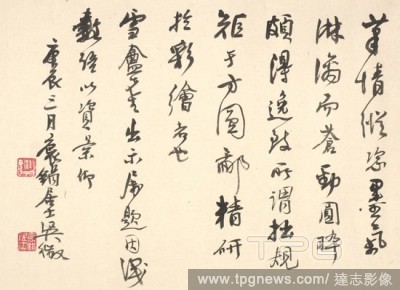 筆情縱恣墨氣
淋漓而蒼勁圓晬
頗得逸致所謂拙規
矩于方圓鄙精研
於彩繪者也
雪盦老出示屬題因識
數語以資景仰
庚辰三月袁鎬居士吳徵
TPG
www.tpgnews.com / 達志影像